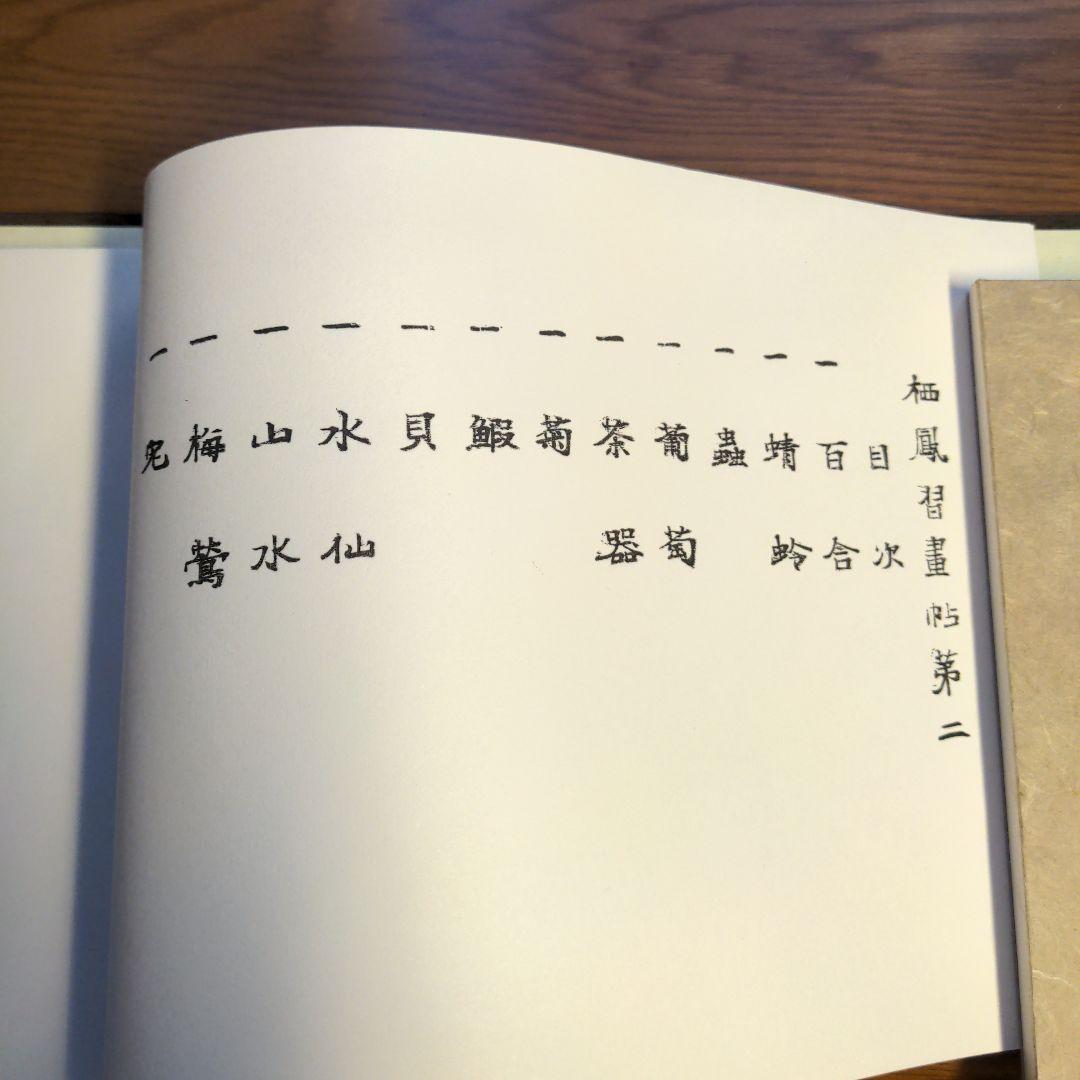 栖鳳習畫帖第二
目次
一 百合
一 蜻蛉
一 蟲
一 葡萄
一 茶器
一 菊
一 鰕
一 貝
一 水仙
一 山水
一 梅鶯
一 兎